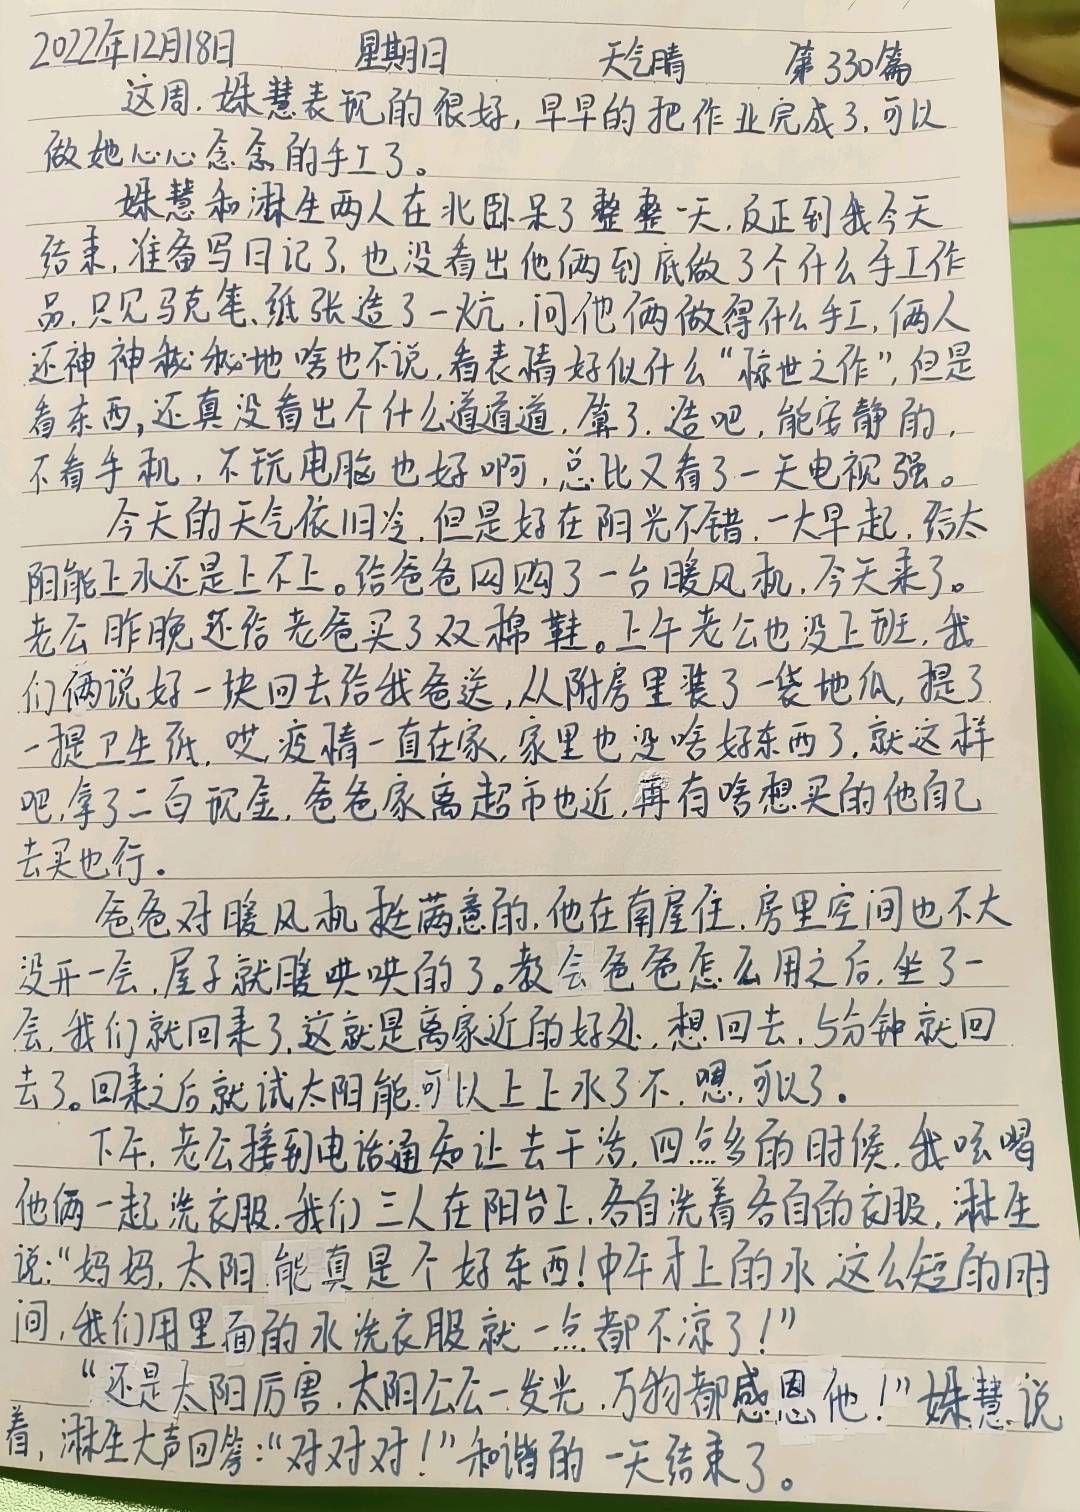 2022年12月18日 星期日 天气晴 第330篇
这周,姝慧表现的很好,早早的把作业完成了,可以
做她心心念念的手工了。
姝慧和淋生两人在北卧呆了整整一天,反正到我今天
结束,准备写日记了,也没看出他俩到底做了个什么手工作
品,只见马克笔、纸张造了一炕,问他俩做得什么手工,俩人
还神神秘秘地啥也不说,看表情好似什么“惊世之作”,但是
看东西,还真没看出个什么道道道,算了,造吧,能安静的,
不看手机,不玩电脑也好啊,总比又看了一天电视强。
今天的天气依旧冷,但是好在阳光不错,一大早起,给太
阳能上水还是上不上。给爸爸网购了一台暖风机,今天来了。
老公昨晚还给老爸买了双棉鞋。上午老公也没上班,我
们俩说好一块回去给我爸送,从附房里装了一袋地瓜,提了
一提卫生纸,哎,疫情一直在家,家里也没啥好东西了,就这样
吧,拿了二百现金,爸爸家离超市也近,再有啥想买的他自己
去买也行。
爸爸对暖风机挺满意的,他在南屋住,房里空间也不大
没开一会,屋子就暖哄哄的了。教会爸爸怎么用之后,坐了一
会,我们就回来了,这就是离家近的好处,想回去,5分钟就回
去了。回来之后就试太阳能可以上上水了不,嗯,可以了。
下午,老公接到电话通知让去干活,四点多的时候,我吆喝
他俩一起洗衣服,我们三人在阳台上,各自洗着各自的衣服,淋生
说:“妈妈,太阳能真是个好东西!中午才上的水这么短的时
间,我们用里面的水洗衣服就一点都不凉了!”
“还是太阳厉害,太阳公公一发光,万物都感恩他!”姝慧说
着,淋生大声回答:“对对对!”和谐的一天结束了。